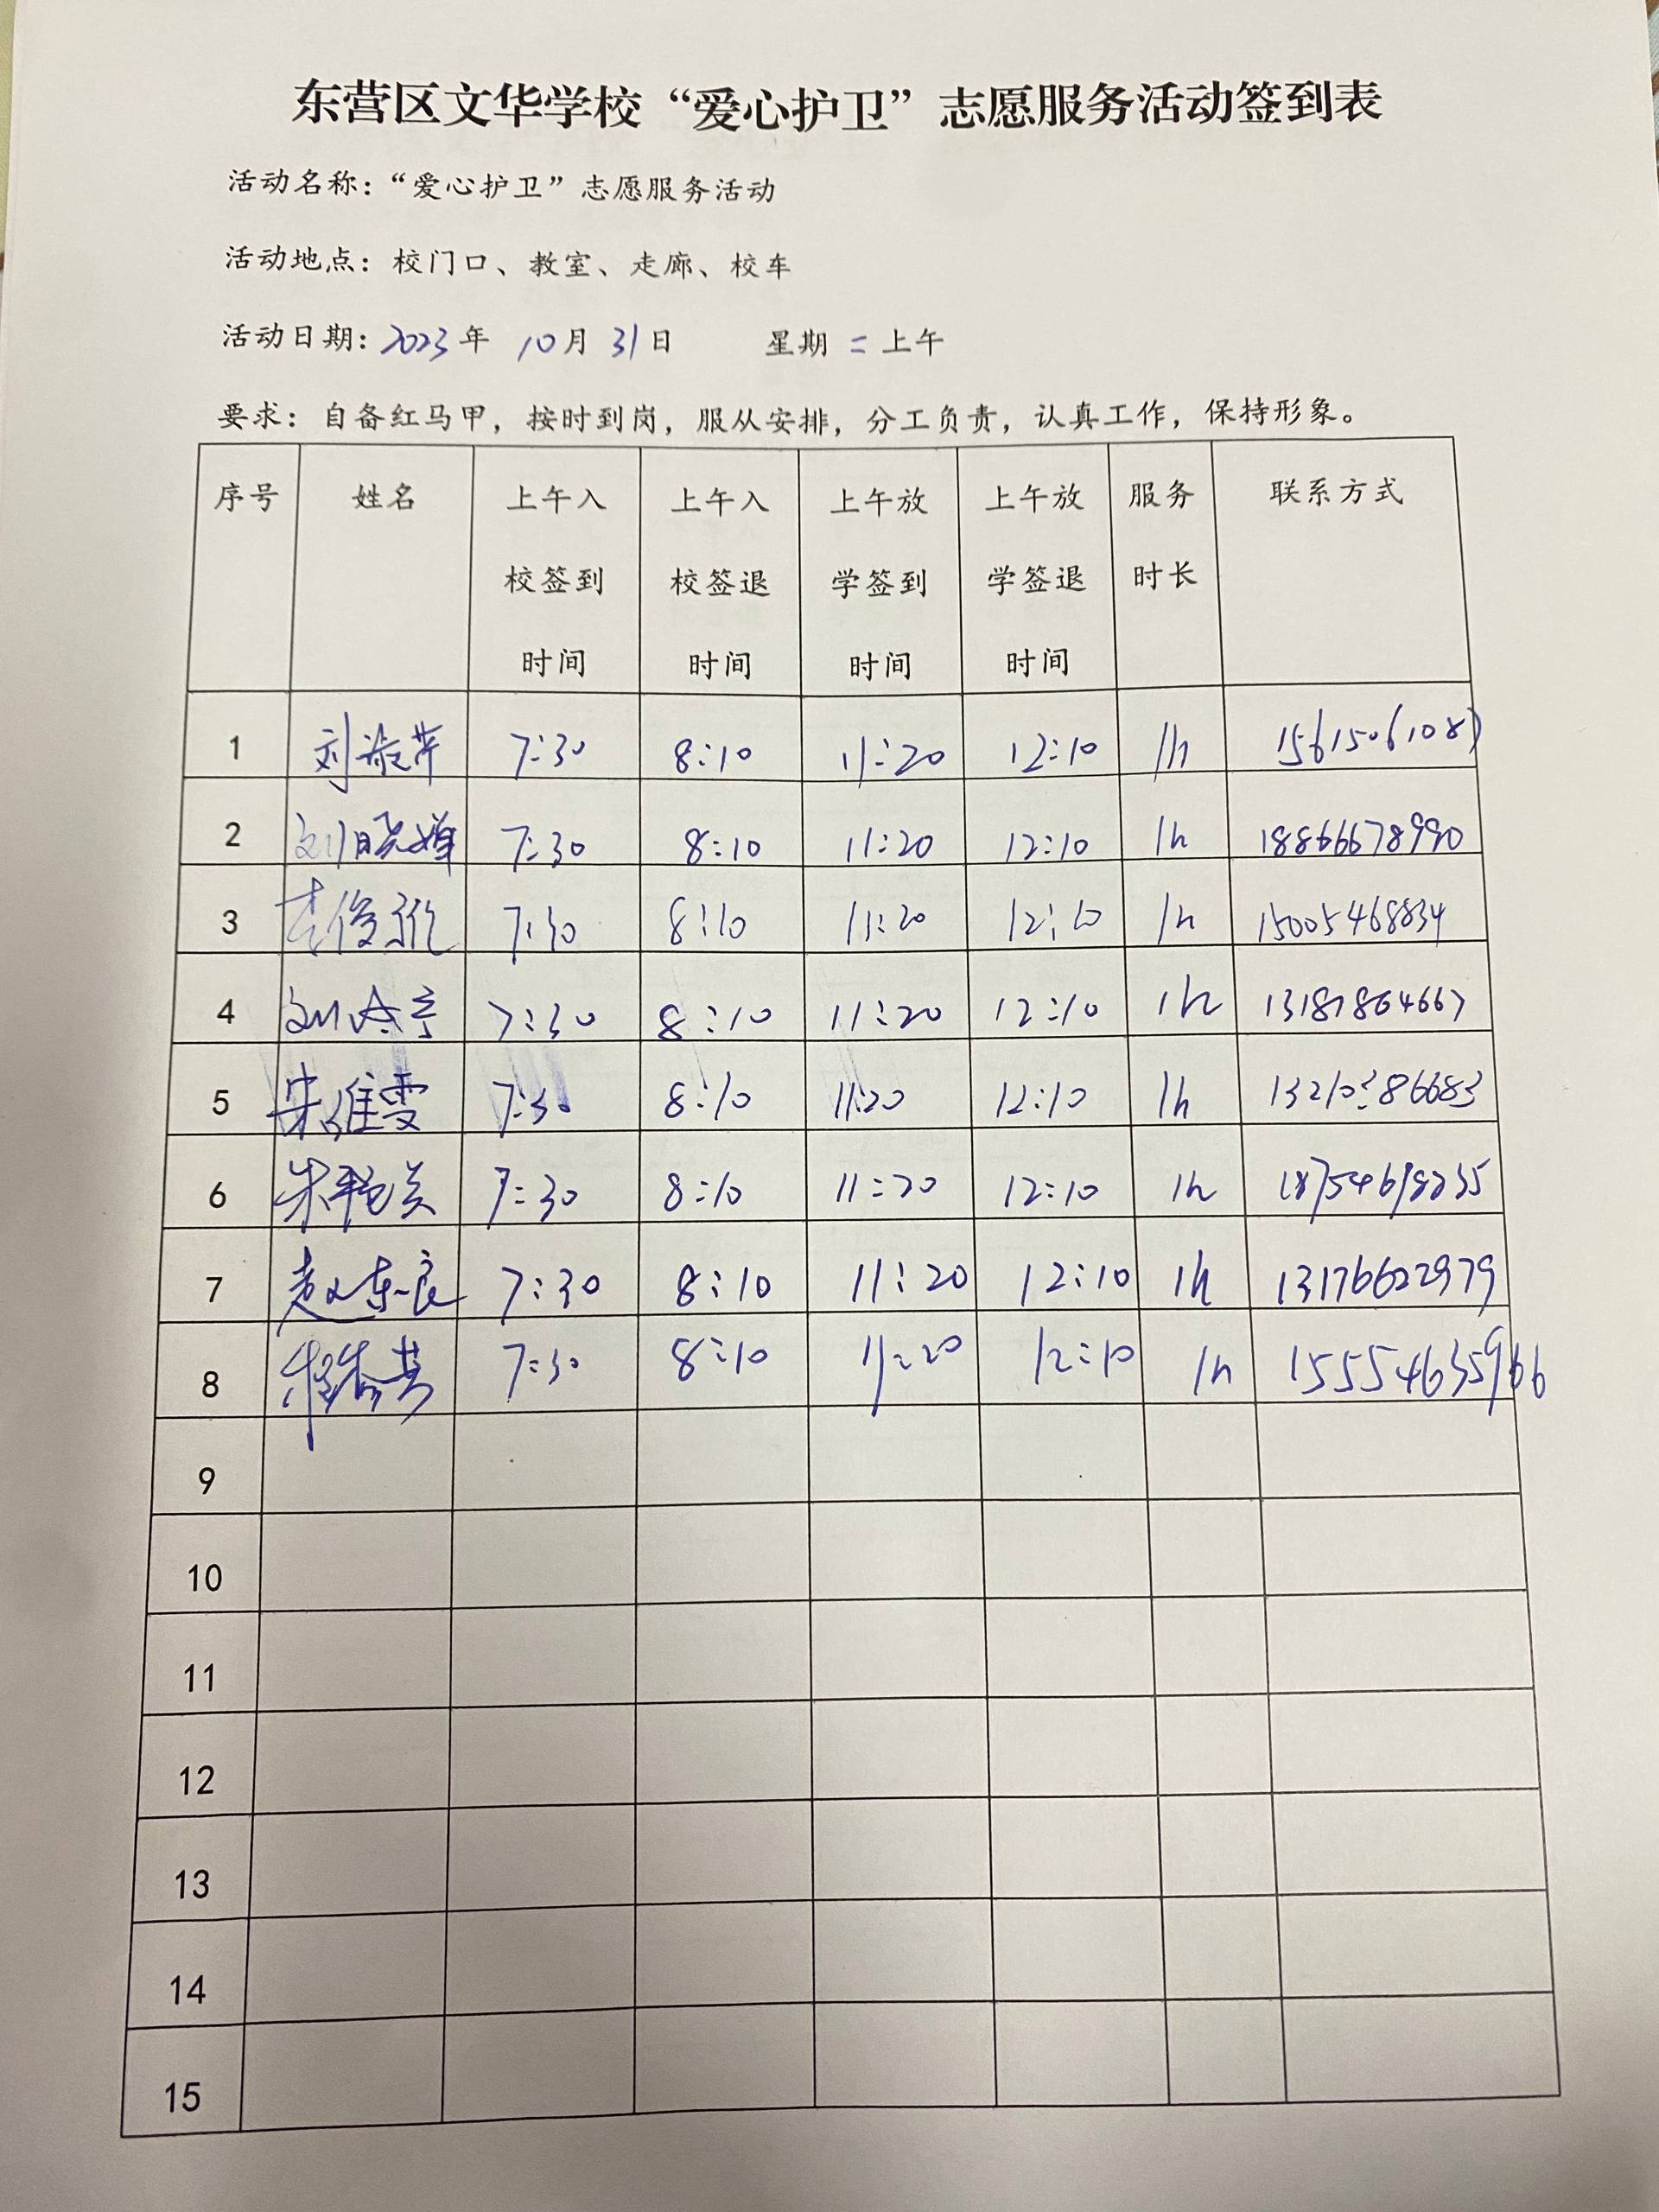 东营区文华学校“爱心护卫”志愿服务活动签到表
活动名称：“爱心护卫”志愿服务活动
活动地点：校门口、教室、走廊、校车
活动日期：2023年 10月 31日 星期二上午
要求：自备红马甲，按时到岗，服从安排，分工负责，认真工作，保持形象。
序号 姓名 上午入校签到时间 上午入校签退时间 上午放学签到时间 上午放学签退时间 服务时长 联系方式
1 7:30 8:10 11:20 12:10 1h
2 刘晓婵 7:30 8:10 11:20 12:10 1h 18866678990
3 7:30 8:10 11:20 12:10 1h 15005468834
4 7:30 8:10 11:20 12:10 1h 13187864667
5 7:30 8:10 11:20 12:10 1h 13210386683
6 7:30 8:10 11:20 12:10 1h
7 赵东良 7:30 8:10 11:20 12:10 1h 13176622979
8 7:30 8:10 11:20 12:10 1h 15554635966
9
10
11
12
13
14
15